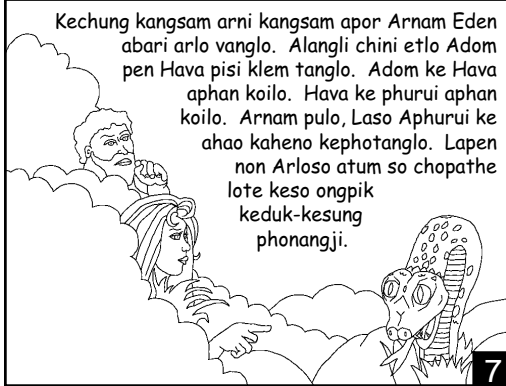 Kechung kangsam arni kangsam apor Arnam Eden
abari arlo vanglo. Alangli chini etlo Adom
pen Hava pisi klem tanglo. Adom ke Hava
aphan koilo. Hava ke phurui aphan
koilo. Arnam pulo, Laso Aphurui ke
ahao kaheno kephotanglo. Lapen
non Arloso atum so chopathe
lote keso ongpik
keduk-kesung
phonangji.
7